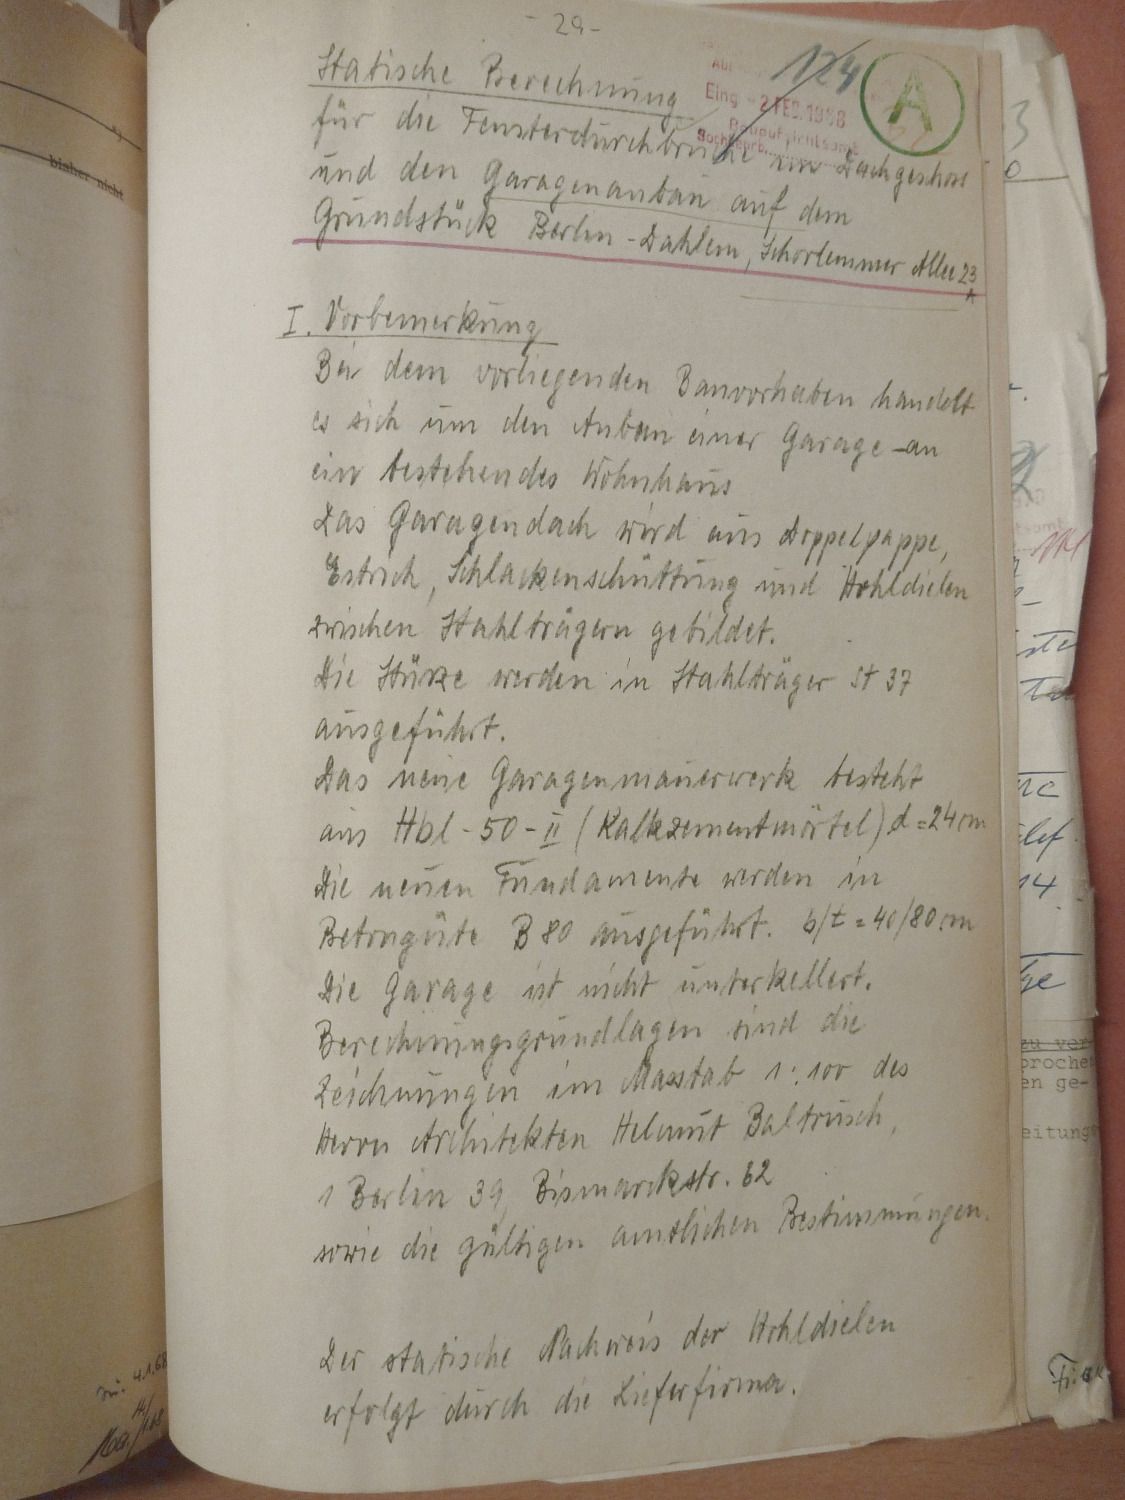 - 29 -
124
A
Eing. - 2. FEB. 1968
Bauaufsichtsamt
Statische Berechnung
für die Fensterdurchbrüche im Dachgeschoss
und den Garagenanbau auf dem
Grundstück Berlin-Dahlem, Schorlemmer Allee 23
A
I. Vorbemerkung
Bei dem vorliegenden Bauvorhaben handelt
es sich um den Anbau einer Garage - an
ein bestehendes Wohnhaus
Das Garagendach wird aus Doppelpappe,
Estrich, Schlackenschüttung und Hohldielen
zwischen Stahlträgern gebildet.
Die Stürze werden in Stahlträger St 37
ausgeführt.
Das neue Garagenmauerwerk besteht
aus Hbl - 50 - II (Kalkzementmörtel) d = 24 cm
Die neuen Fundamente werden in
Betongüte B 80 ausgeführt. b/t = 40/80 cm
Die Garage ist nicht unterkellert.
Berechnungsgrundlagen sind die
Zeichnungen im Masstab 1:100 des
Herrn Architekten Helmut Baltrusch,
1 Berlin 39, Bismarckstr. 62
sowie die gültigen amtlichen Bestimmungen.
Der statische Nachweis der Hohldielen
erfolgt durch die Lieferfirma.
bisher nicht
4.1.68
zu ver
prochen
en ge-
eitung